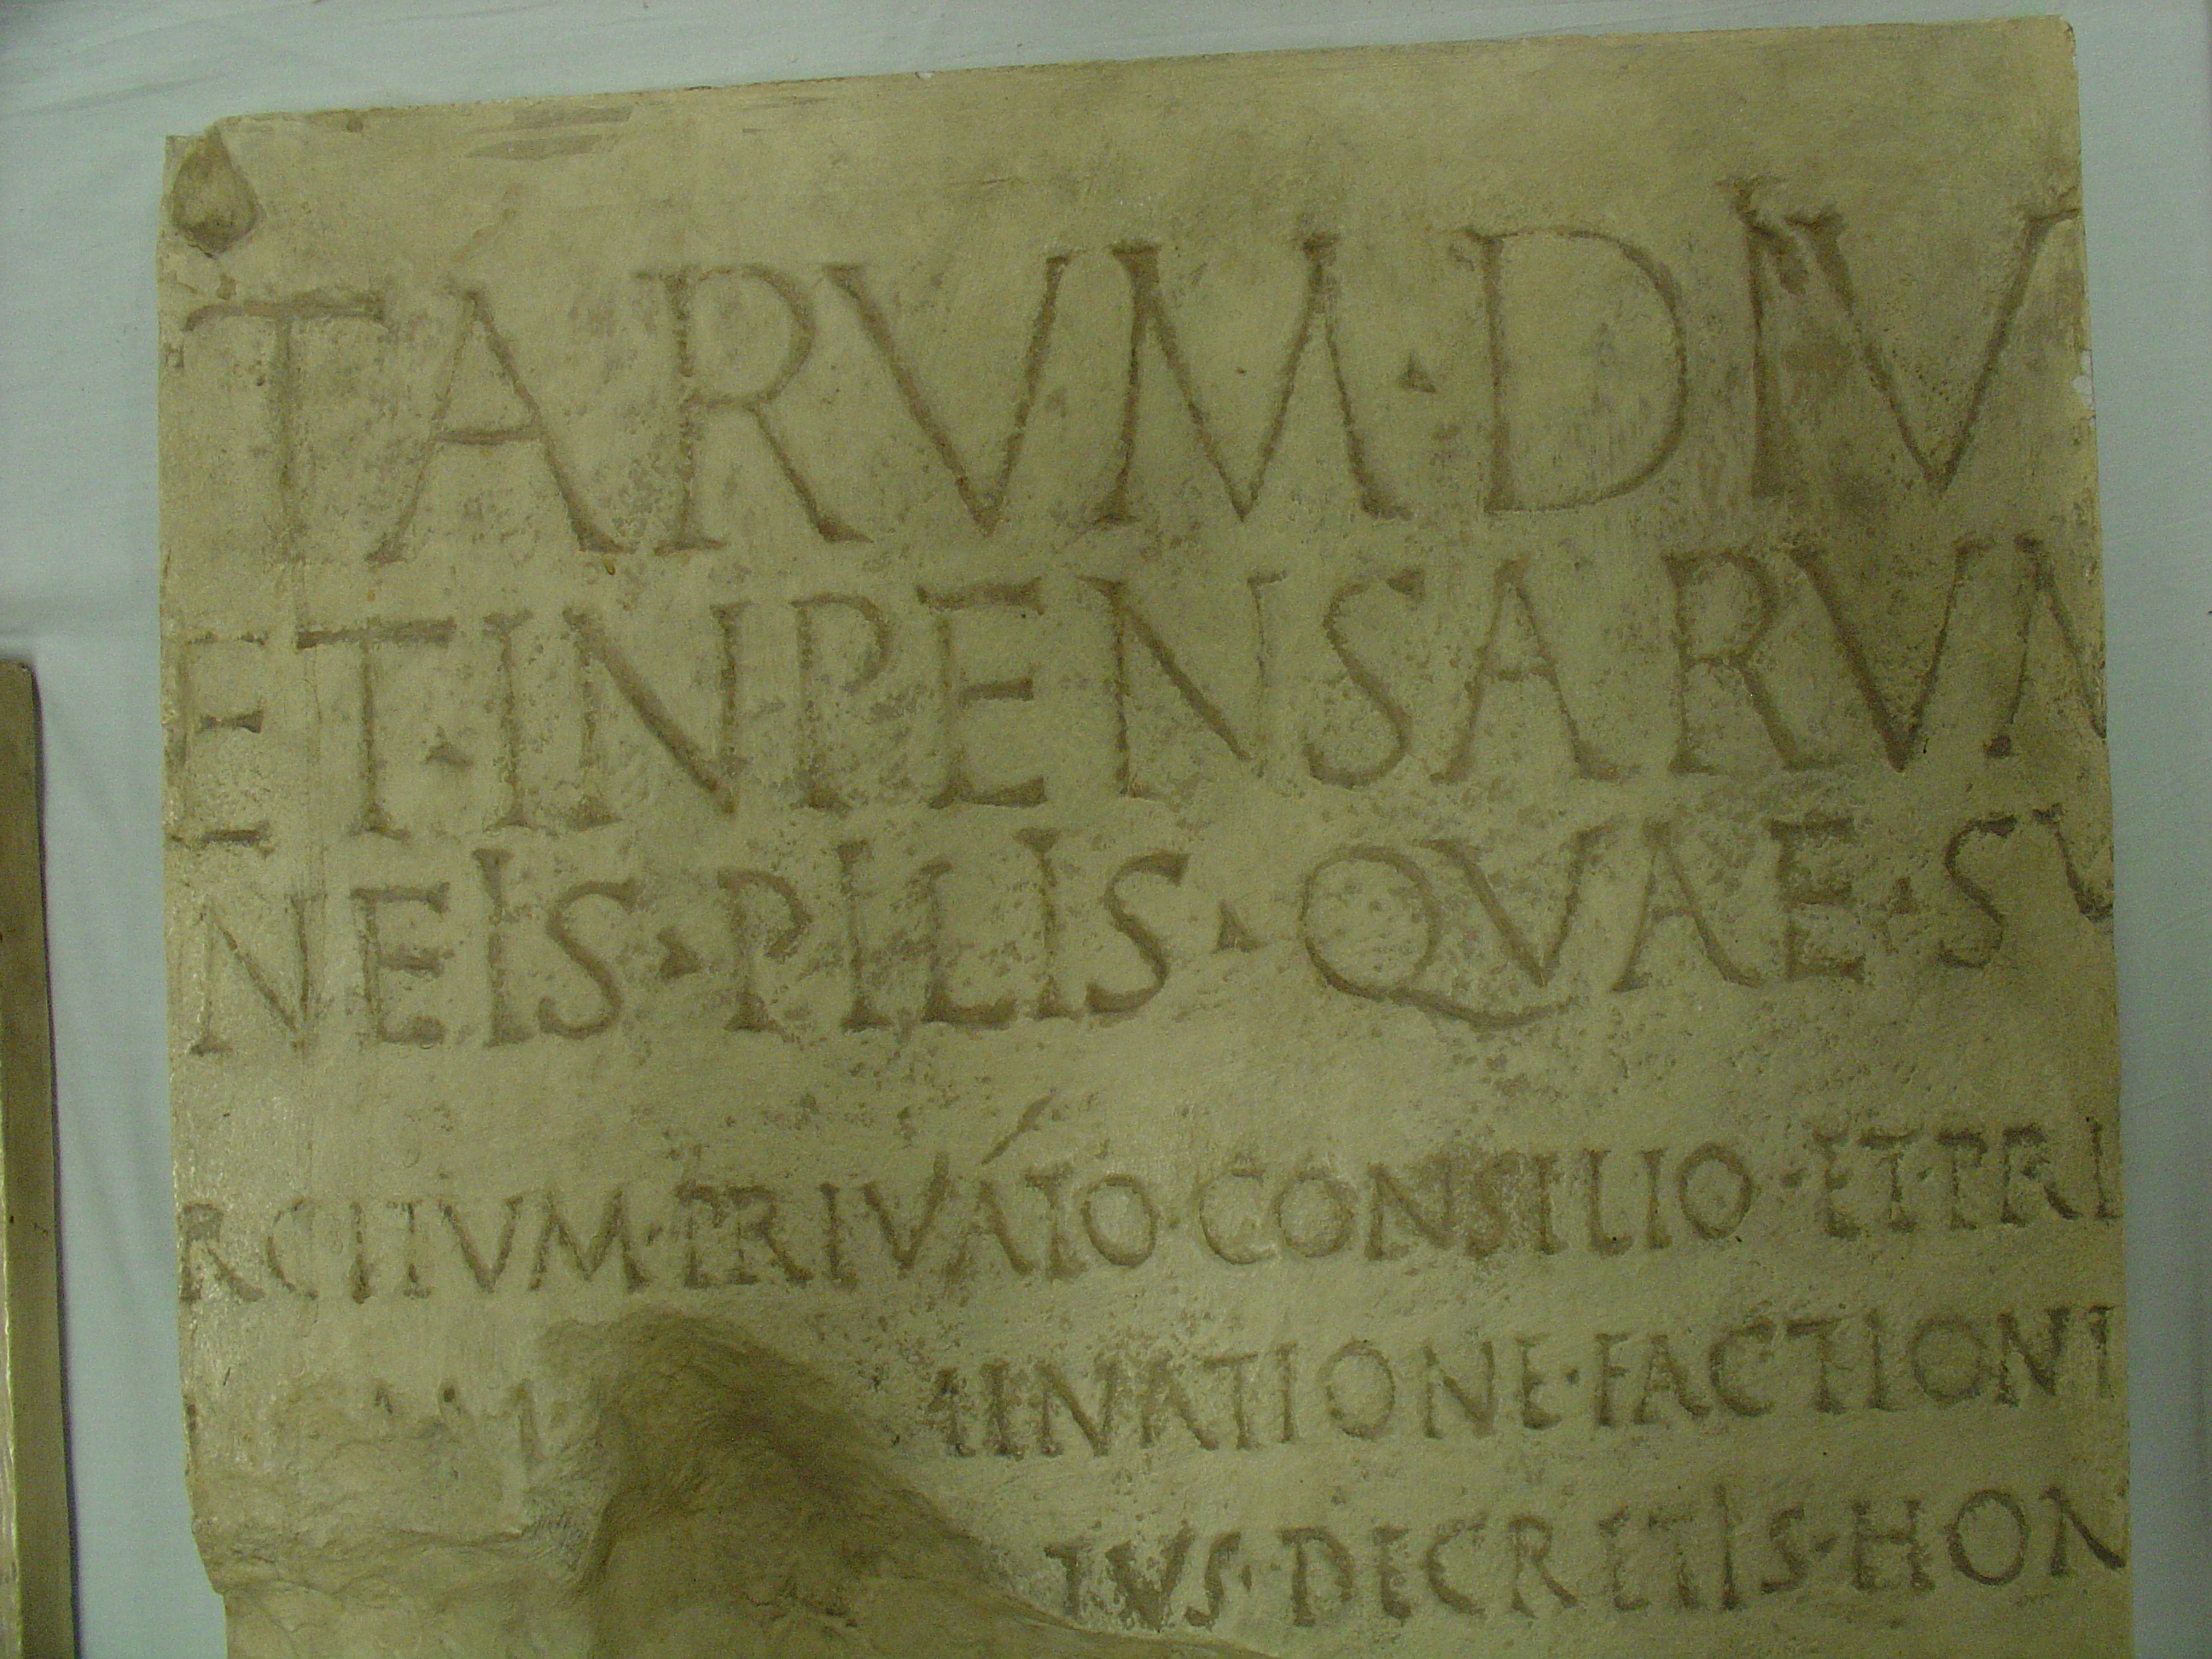 TARVM · DIV
ET · INPENSARVM
NEIS · PILIS · QVAE · SV
RCITVM · PRIVÁTO · CONSILIO · ET · PRI
MINATIONE · FACTIONI
IVS · DECRETIS · HON